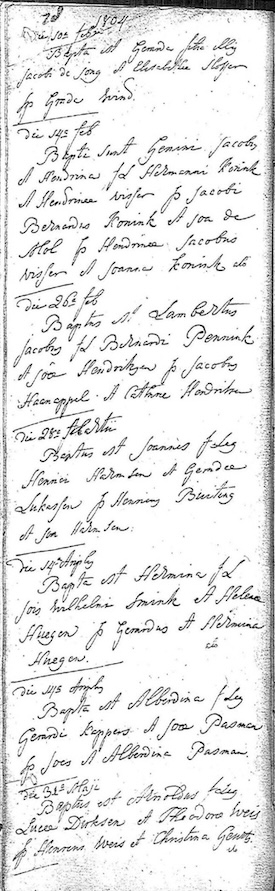 1804
die 13a feb
Bapta est Gerardus
Jacobi de Jong et Elisabethae
p Gerardus Wind
die 14a feb
Bapti sunt Gemini Jacobus
et Hendrina fl Hermanni Konink
et Hendrinae Visser p Jacobi
Bernardus Konink et Joa de
Mol p Hendrinae Jacobus
Visser et Joanna Konink
die 26a feb
Baptus est Lambertus
Jacobus fl Bernardi Pennink
et Joae Hendriksen p Jacobus
Haenappel et Cathrine Hendrikse
die 28a
Baptus est Joannes f leg
Henrici Harmsen et Gerardae
Lukassen p Henricus Buiting
et Joa Harmsen
die 14a Aprilis
Bapta est Hermina f L
Jois Wilhelmi Smink et Helena
Huegen p Gerardus et Hermina
Huegen.
die 14a Aprilis
Bapta est Alberdina f leg
Gerardi Keppers et Joae Pasman
p Joes et Alberdina Pasman
die 31a Maji
Baptus est Arnoldus f leg
Lucae Dirksen et Theodora Weis
p Henricus Weis et Christina